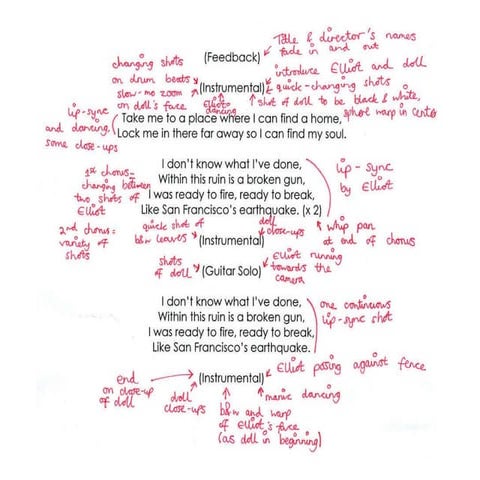 Title & director's names
fade in and out
(Feedback)
changing shots
on drum beats
introduce Elliot and doll
(Instrumental)
quick-changing shots
slow-mo zoom
on doll's face
Elliot
dancing
shot of doll to be black & white,
sphere warp in centre
lip-sync
and dancing,
some close-ups
Take me to a place where I can find a home,
Lock me in there far away so I can find my soul.
1st chorus-
changing between
two shots of
Elliot
I don't know what I've done,
Within this ruin is a broken gun,
I was ready to fire, ready to break,
Like San Francisco's earthquake. (x 2)
lip-sync
by Elliot
2nd chorus:
variety of
shots
quick shot of
b&w leaves
(Instrumental)
doll
close-ups
whip pan
at end of chorus
shots
of doll
(Guitar Solo)
Elliot running
towards the
camera
I don't know what I've done,
Within this ruin is a broken gun,
I was ready to fire, ready to break,
Like San Francisco's earthquake.
one continuous
lip-sync shot
end
on close-up
of doll
(Instrumental)
Elliot posing against fence
doll
close-ups
manic dancing
b&w and warp
of Elliot's face
(as doll in beginning)